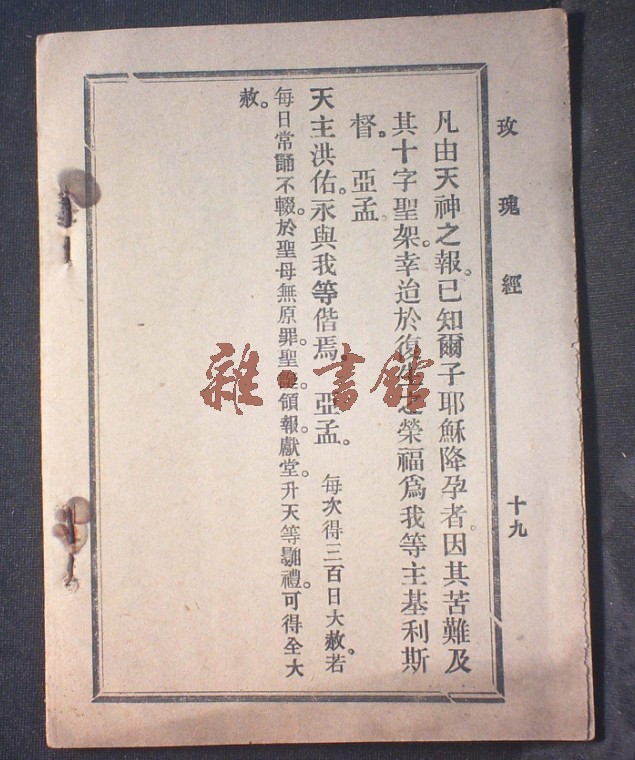 玫瑰經 十九
凡由天神之報。已知爾子耶穌降孕者。因其苦難及
其十字聖架。幸迨於復生之榮福爲我等主基利斯
督。亞孟
天主洪佑。永與我等偕焉。亞孟。 每次得三百日大赦。若
每日常誦不輟。於聖母無原罪。聖誕。領報。獻堂。升天等瞻禮。可得全大
赦。
雜書館